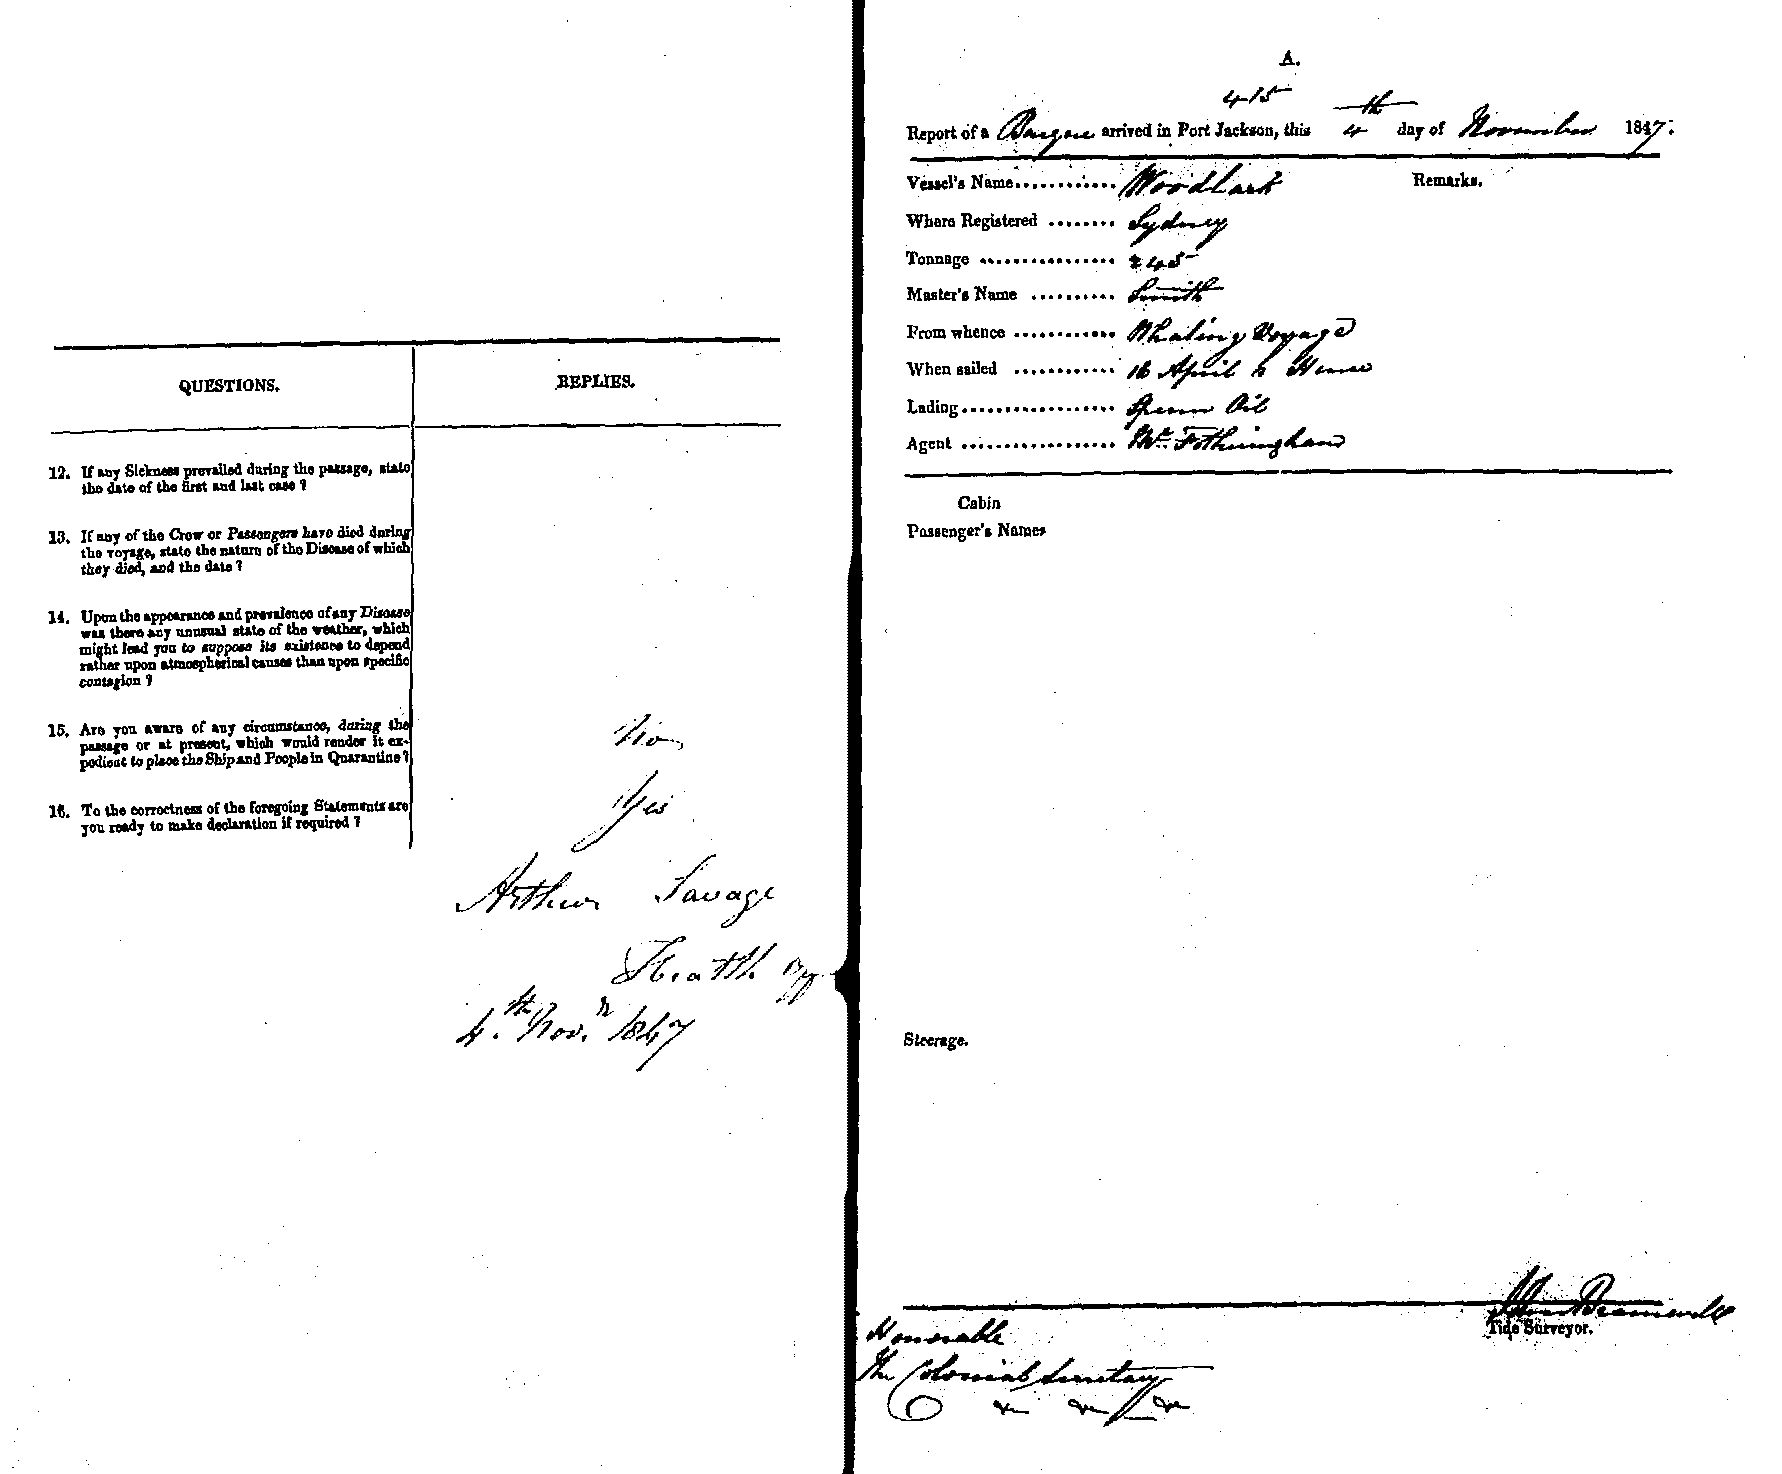 QUESTIONS.
REPLIES.
12. If any Sickness prevailed during the passage, state
the date of the first and last case ?
13. If any of the Crew or Passengers have died during
the voyage, state the nature of the Disease of which
they died, and the date ?
14. Upon the appearance and prevalence of any Disease
was there any unusual state of the weather, which
might lead you to suppose its existence to depend
rather upon atmospherical causes than upon specific
contagion ?
15. Are you aware of any circumstance, during the
passage or at present, which would render it ex-
pedient to place the Ship and People in Quarantine ?
No
16. To the correctness of the foregoing Statements are
you ready to make declaration if required ?
Yes
Arthur Savage
Health
4.th Nov.r 1847
A.
415
Report of a Barque arrived in Port Jackson, this 4th day of November 1847.
Vessel's Name............ Woodlark
Remarks.
Where Registered ........ Sydney
Tonnage ................ 245
Master's Name .......... Smith
From whence ............ Whaling Voyage
When sailed ............ 16 April Hence
Lading.................. Sperm Oil
Agent .................. Mr Fotheringham
Cabin
Passenger's Names
Steerage.
John Bramwell
Tide Surveyor.
Honorable
The Colonial Secretary